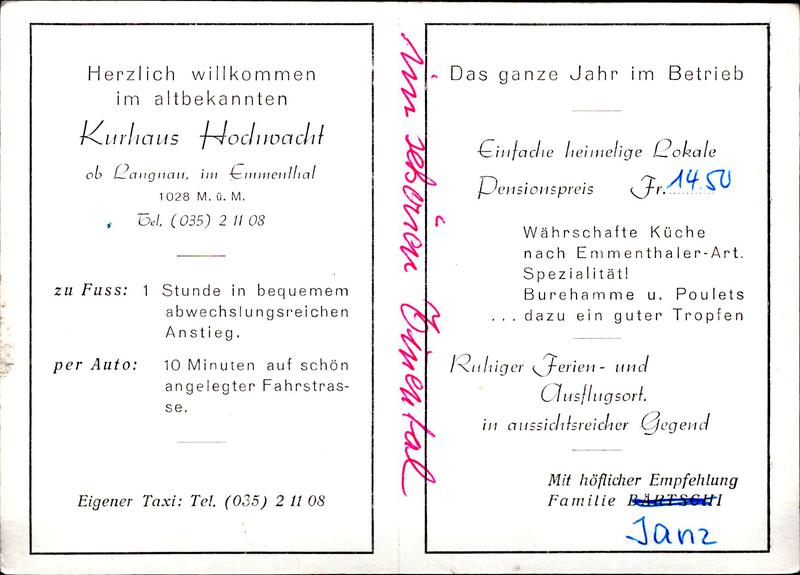 Herzlich willkommen
im altbekannten
Kurhaus Hochwacht
ob Langnau, im Emmenthal
1028 M. ü. M.
Tel. (035) 2 11 08
zu Fuss: 1 Stunde in bequemem
abwechslungsreichen
Anstieg.
per Auto: 10 Minuten auf schön
angelegter Fahrstras-
se.
Eigener Taxi: Tel. (035) 2 11 08
Im schönen Ämmental
Das ganze Jahr im Betrieb
Einfache heimelige Lokale
Pensionspreis Fr. 14.50
Währschafte Küche
nach Emmenthaler-Art.
Spezialität!
Burehamme u. Poulets
... dazu ein guter Tropfen
Ruhiger Ferien- und
Ausflugsort.
in aussichtsreicher Gegend
Mit höflicher Empfehlung
Familie BÄRTSCHI
Janz